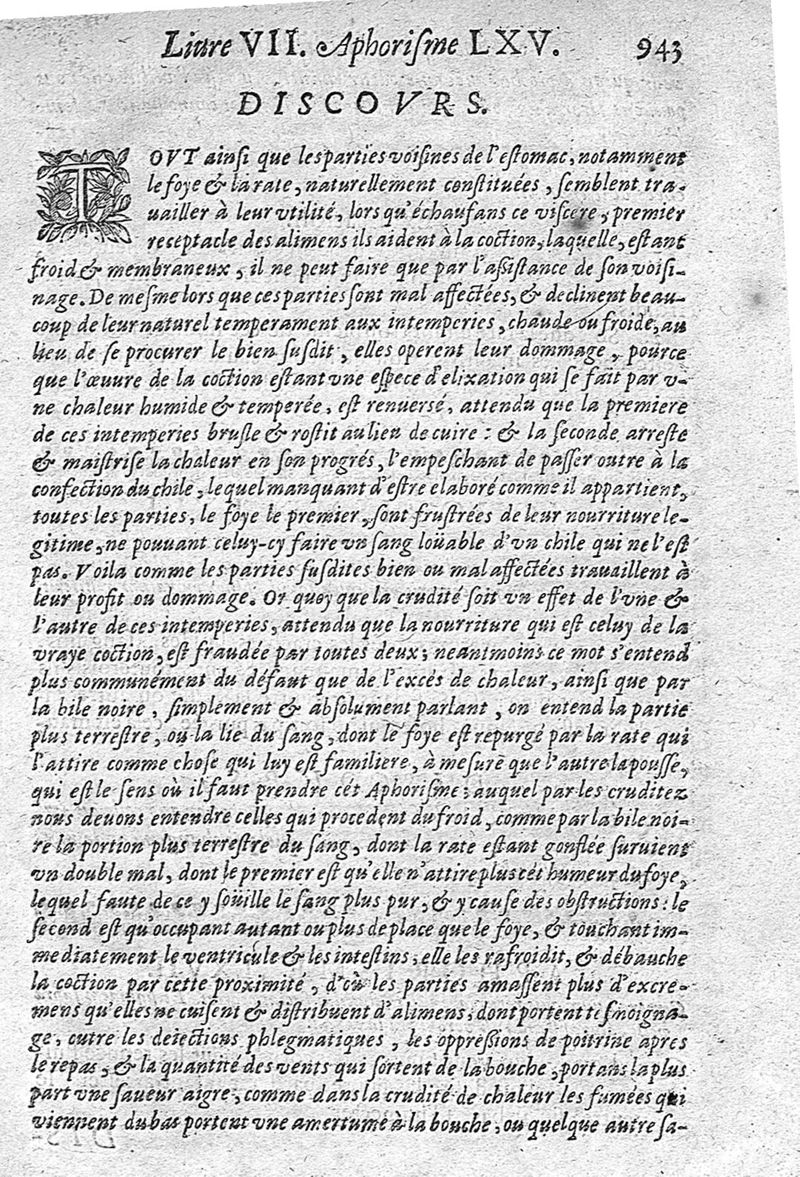 Liure VII. Aphorisme LXV. 943
DISCOVRS.
TOVT ainsi que les parties voisines de l'estomac, notamment
le foye & la rate, naturellement constituées, semblent tra-
uailler à leur vtilité, lors qu'échaufans ce viscere, premier
receptacle des alimens ils aident à la coction, laquelle, estant
froid & membraneux, il ne peut faire que par l'assistance de son voisi-
nage. De mesme lors que ces parties sont mal affectées, & declinent beau-
coup de leur naturel temperament aux intemperies, chaude ou froide, au
lieu de se procurer le bien susdit, elles operent leur dommage, pource
que l'œuure de la coction estant vne espece d'elixation qui se fait par v-
ne chaleur humide & temperée, est renuersé, attendu que la premiere
de ces intemperies brusle & rostit au lieu de cuire : & la seconde arreste
& maistrise la chaleur en son progrés, l'empeschant de passer outre à la
confection du chile, lequel manquant d'estre elaboré comme il appartient,
toutes les parties, le foye le premier, sont frustrées de leur nourriture le-
gitime, ne pouuant celuy-cy faire vn sang loüable d'vn chile qui ne l'est
pas. Voila comme les parties susdites bien ou mal affectées trauaillent à
leur profit ou dommage. Or quoy que la crudité soit vn effet de l'vne &
l'autre de ces intemperies, attendu que la nourriture qui est celuy de la
vraye coction, est fraudée par toutes deux; neantmoins ce mot s'entend
plus communément du défaut que de l'excés de chaleur, ainsi que par
la bile noire, simplement & absolument parlant, on entend la partie
plus terrestre, ou la lie du sang, dont le foye est repurgé par la rate qui
l'attire comme chose qui luy est familiere, à mesure que l'autre la pousse,
qui est le sens où il faut prendre cét Aphorisme : auquel par les cruditez
nous deuons entendre celles qui procedent du froid, comme par la bile noi-
re la portion plus terrestre du sang, dont la rate estant gonflée suruient
vn double mal, dont le premier est qu'elle n'attire plus cét humeur du foye,
lequel faute de ce y soüille le sang plus pur, & y cause des obstructions : le
second est qu'occupant autant ou plus de place que le foye, & touchant im-
mediatement le ventricule & les intestins, elle les rafroidit, & débauche
la coction par cette proximité, d'où les parties amassent plus d'excre-
mens qu'elles ne cuisent & distribuent d'alimens, dont portent tesmoigna-
ge, outre les deiections phlegmatiques, les oppressions de poitrine apres
le repas, & la quantité des vents qui sortent de la bouche, portans la plus
part vne saueur aigre, comme dans la crudité de chaleur les fumées qui
viennent du bas portent vne amertume à la bouche, ou quelque autre sa-